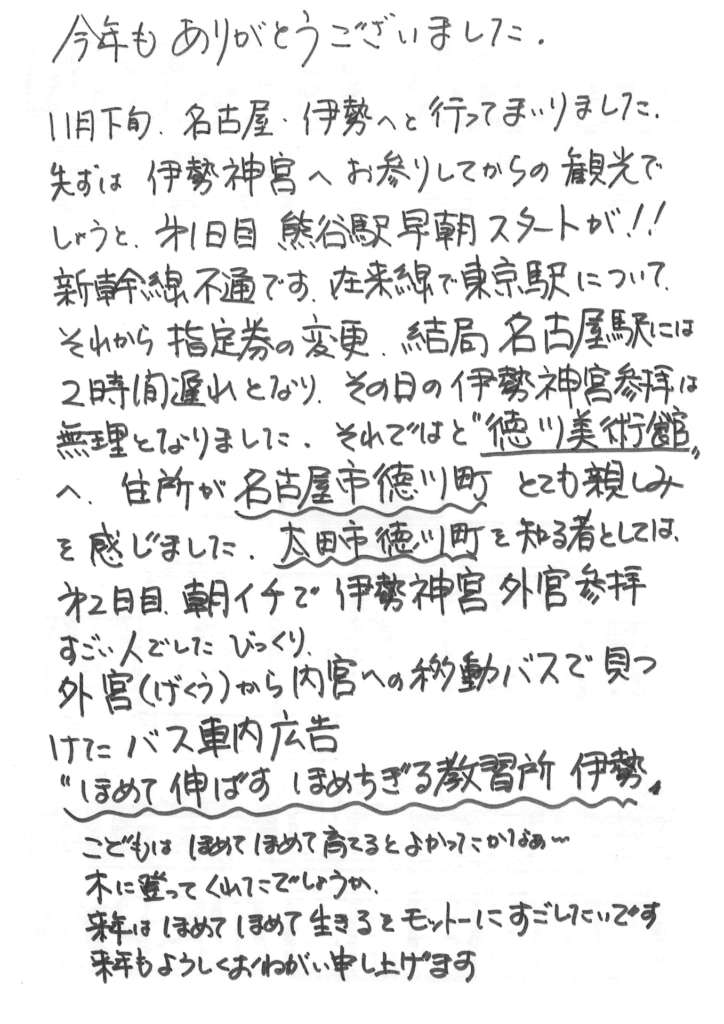 今年も ありがとうございました.
11月下旬、名古屋・伊勢へと行ってまいりました.
先ずは 伊勢神宮へ お参りしてからの 観光で
しょうと、才1日目 熊谷駅早朝スタートが!!
新幹線不通です、在来線で東京駅について、
それから 指定券の変更、結局 名古屋駅には
2時間遅れとなり、その日の伊勢神宮参拝は
無理となりました. それではと"徳川美術館"
へ、住所が 名古屋市徳川町 とても親しみ
を感じました. 太田市徳川町を知る者としては、
才2日目、朝イチで 伊勢神宮 外宮参拝
すごい人でした びっくり、
外宮(げくう)から内宮への移動バスで見つ
けた バス車内広告
"ほめて伸ばす ほめちぎる教習所 伊勢"
こどもは ほめてほめて育てるとよかったかなぁ…
木に登ってくれたでしょうか、
来年は ほめてほめて生きるとモットーにすごしたいです
来年もよろしくおねがい申し上げます